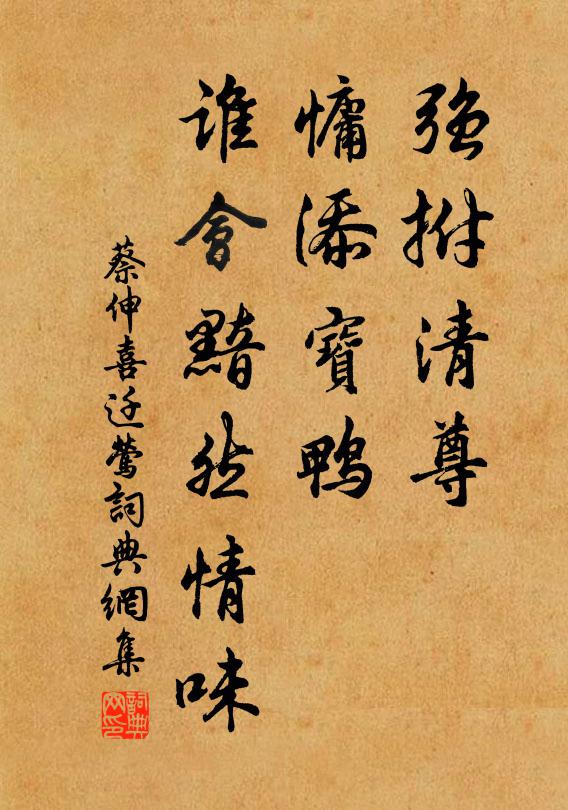 强拊清尊
慵添寶鴨
誰會黯然情味
蔡伸喜迁鶯詞典網集
詞典网印